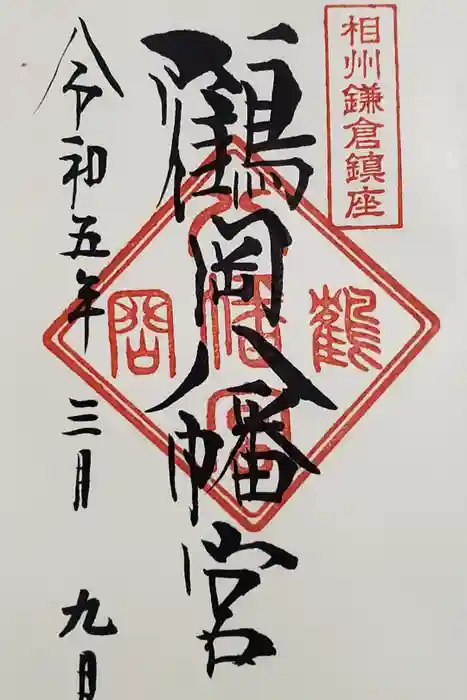 相州鎌倉鎮座
鶴岡八幡宮
鶴
岡
令和五年 三月 九日